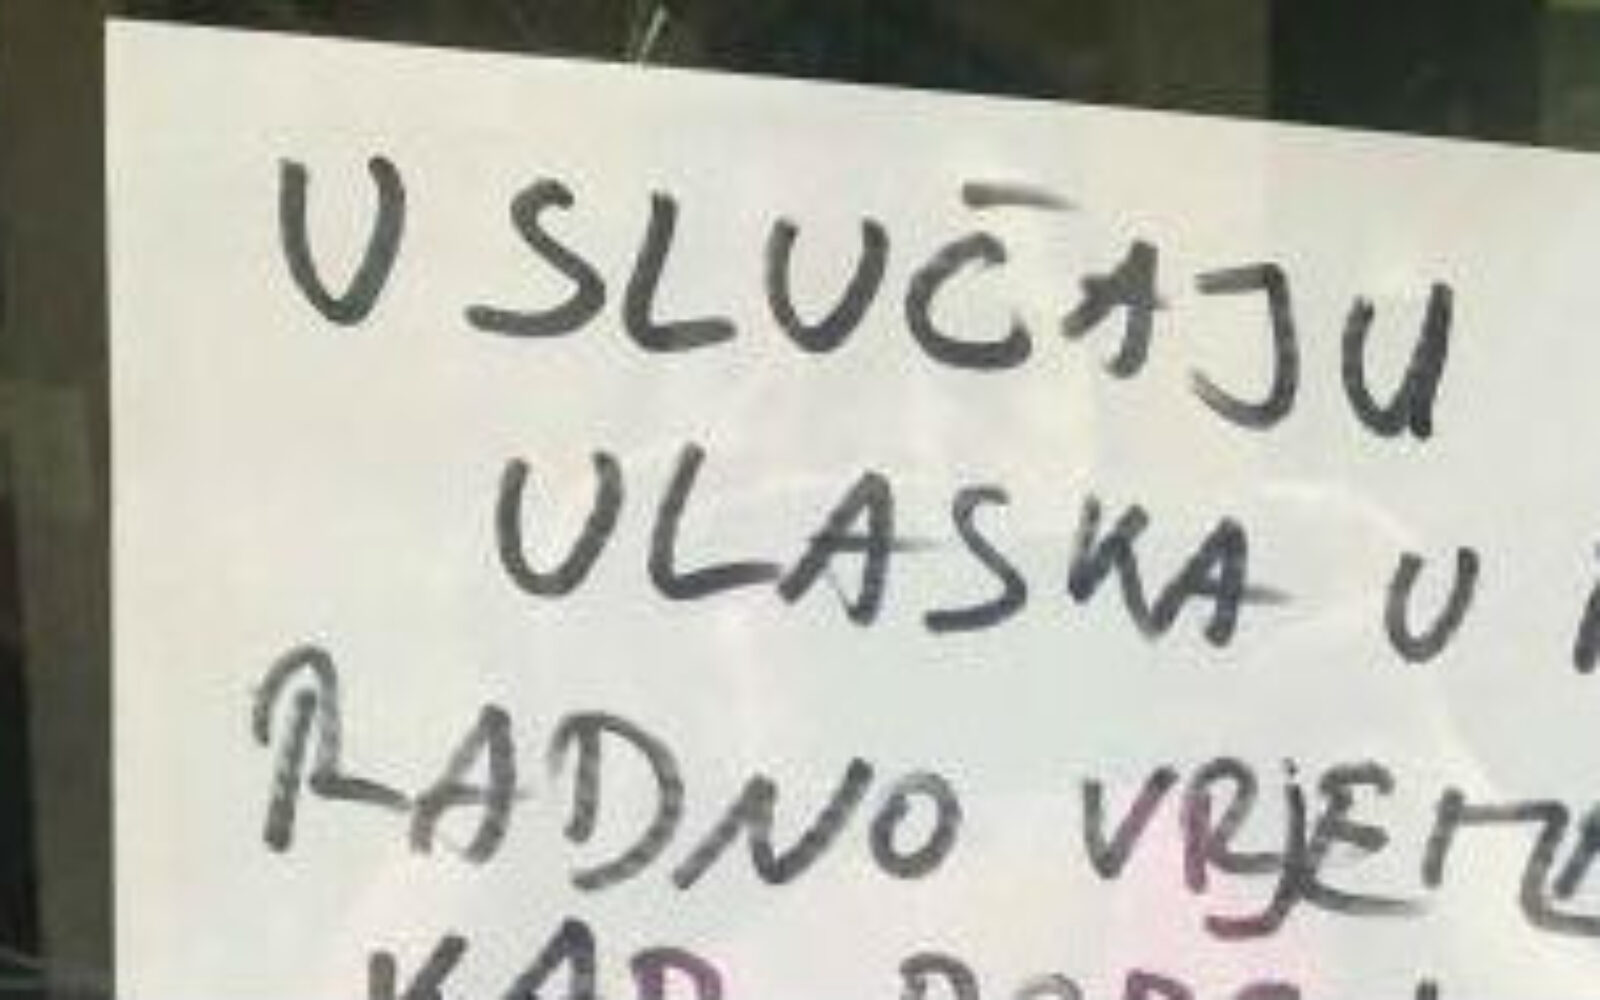 U SLUČAJU
ULASKA U
RADNO
KAD